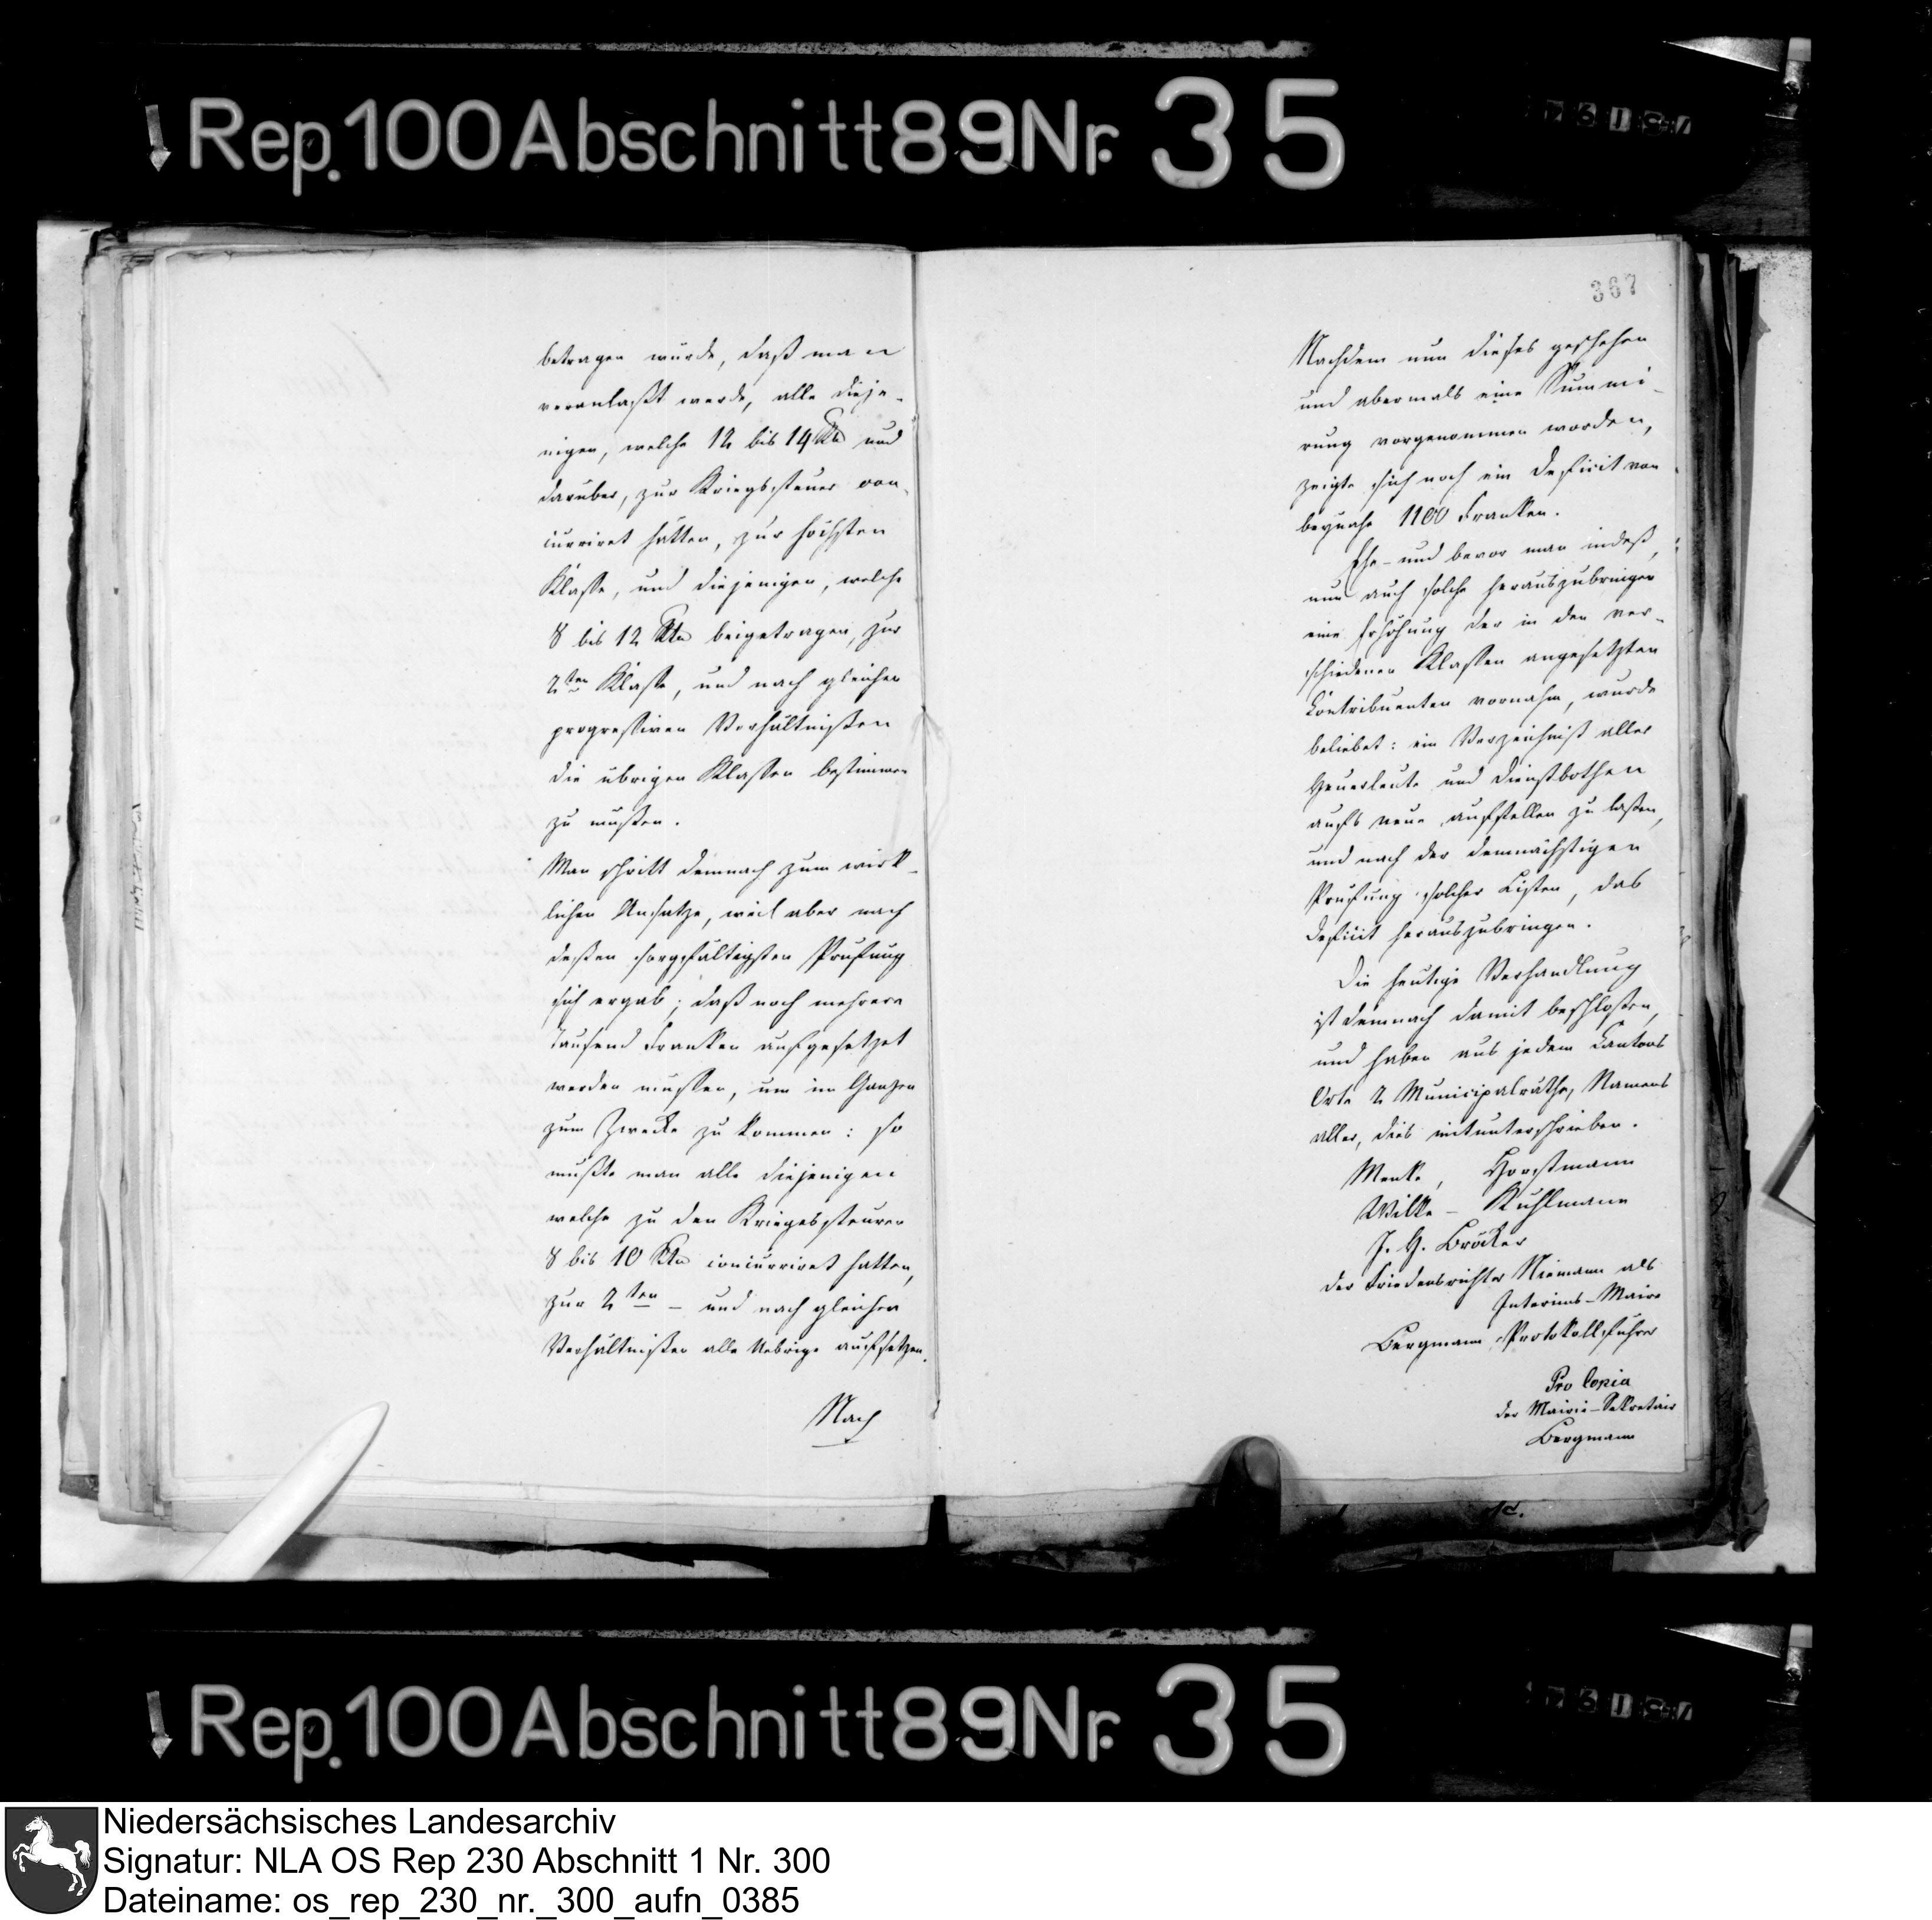 Rep. 100 Abschnitt 89 Nr. 35
betragen würde, daß man
veranlaßt werde, alle dieje-
nigen, welche 12 bis 14 Rtn und
darüber, zur Kriegssteuer con-
curriret hätten, zur höchsten
Klasse, und diejenigen, welche
8 bis 12 Rtn beigetragen, zur
2ten Klasse, und nach gleichen
progressiven Verhältnißen
die übrigen Klassen bestimmen
zu müßen.
Man schritt demnach zum wirk-
lichen Ansatze, weil aber nach
deßen sorgfältigsten Prüfung
sich ergab; daß noch mehrere
Tausend Franken aufgesetzet
werden müssen, um im Ganzen
zum Zwecke zu kommen: so
mußte man alle diejenigen
welche zu den Kriegessteuren
8 bis 10 Rtn concurriret hatten,
zur 2ten - und nach gleichen
Verhältnißen alle Uebrige aufsetzen.
Nach
367
Nachdem nun dieses geschehen
und abermals eine Summi-
rung vorgenommen worden,
zeigte sich noch ein Deficit von
beynahe 1100 Franken.
Ehe- und bevor man indeß,
nun auch solche herauszubringen
eine Erhöhung der in den ver-
schiedenen Klassen angesetzten
Contribuenten vornahm, wurde
beliebet: ein Verzeichniß aller
Heuerleute und Dienstbothen
aufs neue aufstellen zu laßen,
und nach der demnächstigen
Prüfung solcher Listen, das
Deficit herauszubringen.
Die heutige Verhandlung
ist demnach damit beschloßen,
und haben aus jedem Cantons
Orte 2 Municipalräthe, Namens
aller, dies mitunterschrieben.
Menke, Horstmann
Wilke - Kuhlmann
J. H. Bröcker
der Friedensrichter Niemann als
Interims-Maire
Bergmann Protokollführer
Pro Copia
der Mairie-Sekretair
Bergmann
Rep. 100 Abschnitt 89 Nr. 35
Niedersächsisches Landesarchiv
Signatur: NLA OS Rep 230 Abschnitt 1 Nr. 300
Dateiname: os_rep_230_nr._300_aufn_0385